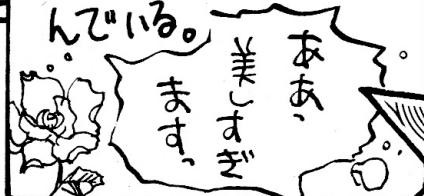 んでいる。
ああっ
美しすぎ
ますっ